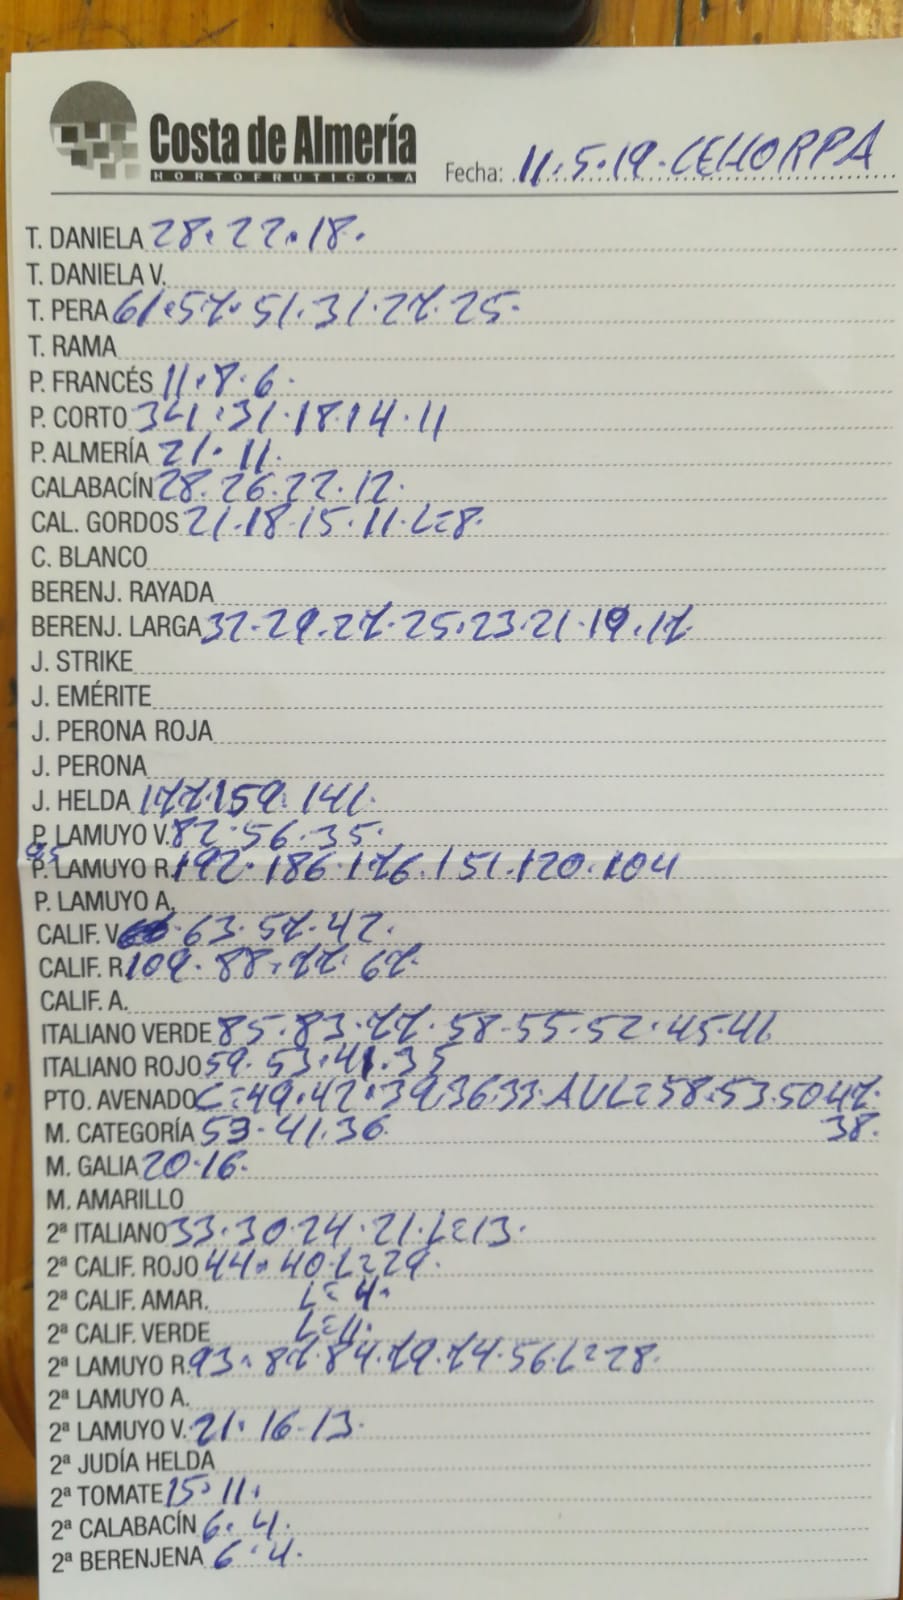 Costa de Almería
HORTOFRUTICOLA
Fecha: 11.5.19. CEHORPA
T. DANIELA 28. 22. 18.
T. DANIELA V.
T. PERA 61.57.51.31.27.25.
T. RAMA
P. FRANCÉS 11.8.6.
P. CORTO 34.31.18.14.11
P. ALMERÍA 21.11.
CALABACÍN 28.26.22.12.
CAL. GORDOS 21.18.15.11.L=8.
C. BLANCO
BERENJ. RAYADA
BERENJ. LARGA 32.29.27.25.23.21.19.17.
J. STRIKE
J. EMÉRITE
J. PERONA ROJA
J. PERONA
J. HELDA 177.159.141.
P. LAMUYO V. 82.56.35.
95
P. LAMUYO R. 192.186.176.151.120.104
P. LAMUYO A.
CALIF. V. 63.57.42.
CALIF. R. 109.88.77.67.
CALIF. A.
ITALIANO VERDE 85.83.77.58.55.52.45.41.
ITALIANO ROJO 59.53.41.35
PTO. AVENADO C=49.42.39.36.33.AUL=58.53.50.47.
38.
M. CATEGORÍA 53.41.36
M. GALIA 20.16.
M. AMARILLO
2ª ITALIANO 33.30.24.21.L=13.
2ª CALIF. ROJO 44.40.L=29.
2ª CALIF. AMAR. L=4.
2ª CALIF. VERDE L=11.
2ª LAMUYO R. 93.87.84.79.74.56.L=28.
2ª LAMUYO A.
2ª LAMUYO V. 21.16.13.
2ª JUDÍA HELDA
2ª TOMATE 15.11.
2ª CALABACÍN 6.4.
2ª BERENJENA 6.4.